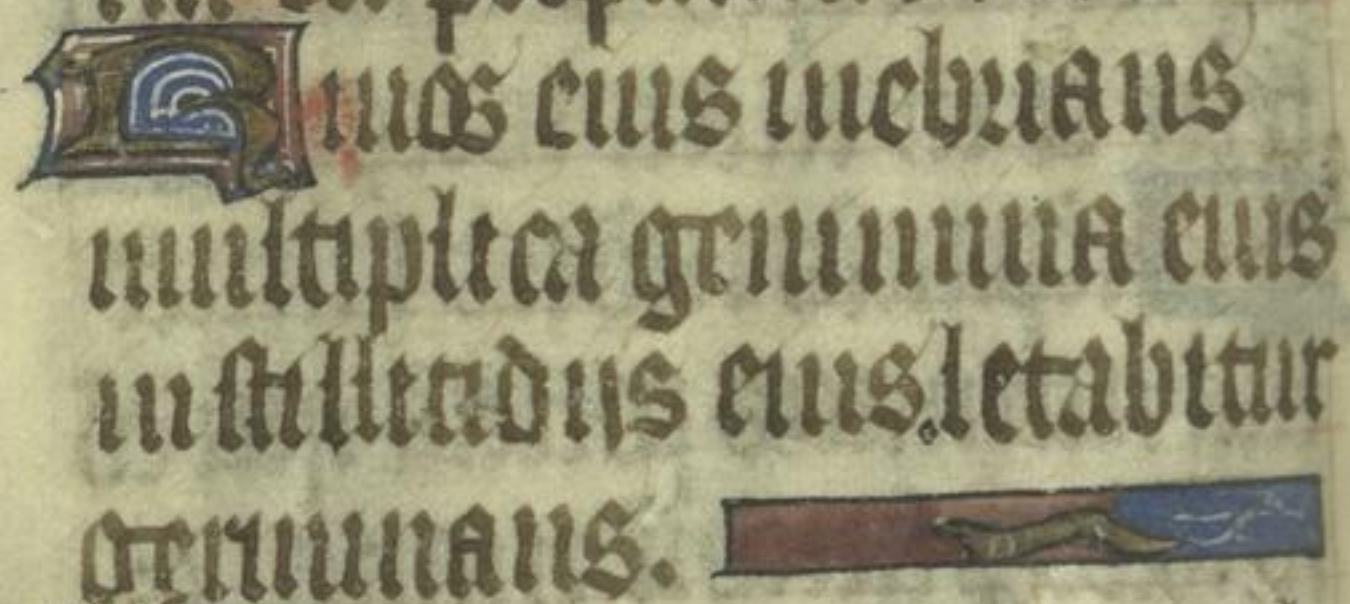 Riuos eius inebrians
multiplica genimina eius
in stillicidijs eius. letabitur
germinans.